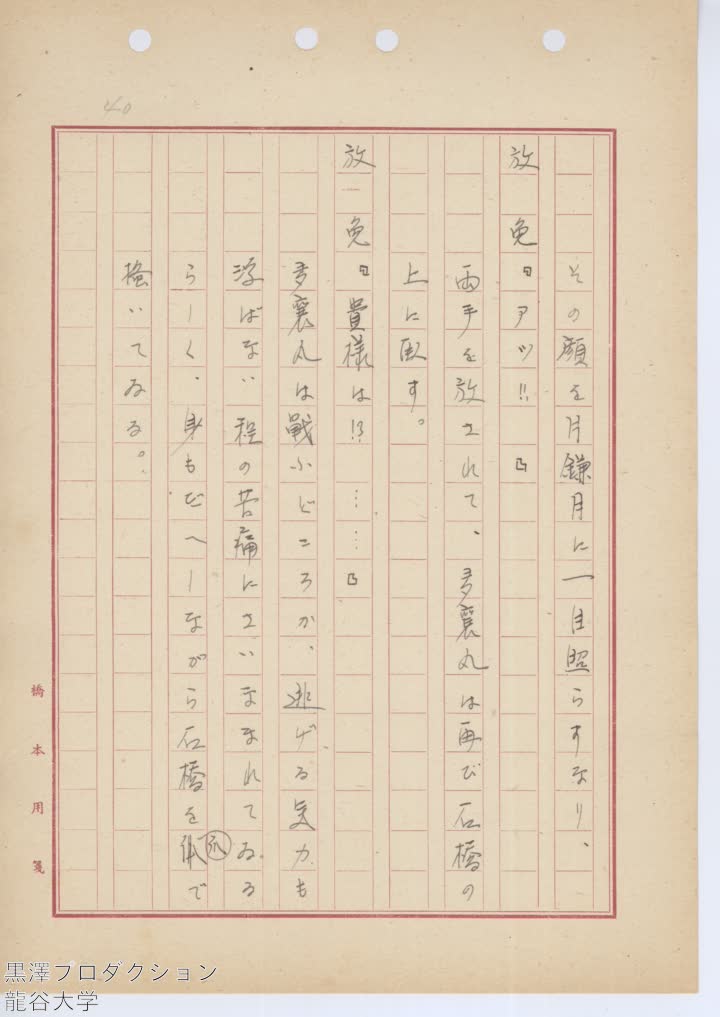 40
その顔を片鎌月に一目照らすなり、
放　免『アツ!!』
両手を放されて、多襄丸は再び石橋の
上に倒す。
放　免『貴様は!?……』
多襄丸は戰ふどころか、逃げる気力も
浮ばない程の苦痛にさいなまれてゐる
らしく、身もだへしながら石橋を爪で
掻いてゐる。
橋本用箋
黒澤プロダクション
龍谷大学